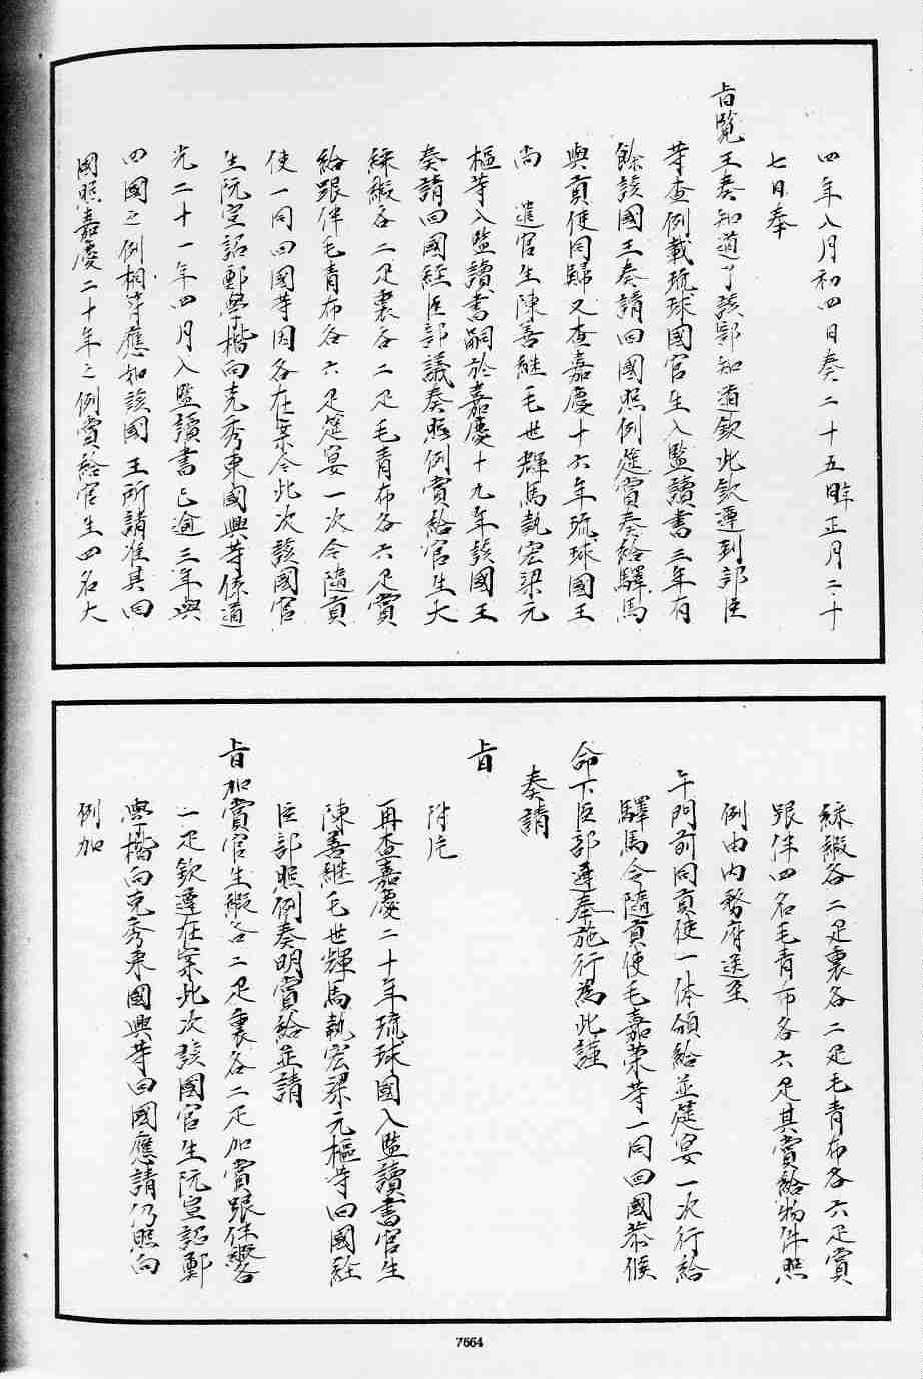 四年八月初四日奏二十五年正月二十
七日奉
旨覽王奏知道了該部知道欽此欽遵到部臣
等查例載琉球國官生入監讀書三年有
餘該國王奏請回國照例筵賞奏給驛馬
與貢使同歸又查嘉慶十六年琉球國王
尚 遣官生陳善繼毛世輝馬執宏梁元
樞等入監讀書嗣於嘉慶十九年該國王
奏請回國經臣部議奏照例賞給官生大
綵緞各二疋裏各二疋毛青布各六疋賞
給跟伴毛青布各六疋筵宴一次令隨貢
使一同回國等因各在案今此次該國官
生阮宣詔鄭學楷向克秀東國興等係道
光二十一年四月入監讀書已逾三年與
四國之例相等應如該國王所請准其回
國照嘉慶二十年之例賞給官生四名大
綵緞各二疋裏各二疋毛青布各六疋賞
跟伴四名毛青布各六疋其賞給物件照
例由內務府送至
午門前同貢使一体頒給並筵宴一次行給
驛馬令隨貢使毛嘉榮等一同回國恭候
命下臣部遵奉施行為此謹
奏請
旨
附片
再查嘉慶二十年琉球國入監讀書官生
陳善繼毛世輝馬執宏梁元樞等回國經
臣部照例奏明賞給並請
旨加賞官生緞各二疋裏各二疋加賞跟伴紬各
一疋欽遵在案此次該國官生阮宣詔鄭
學楷向克秀東國興等回國應請仍照向
例加
7664